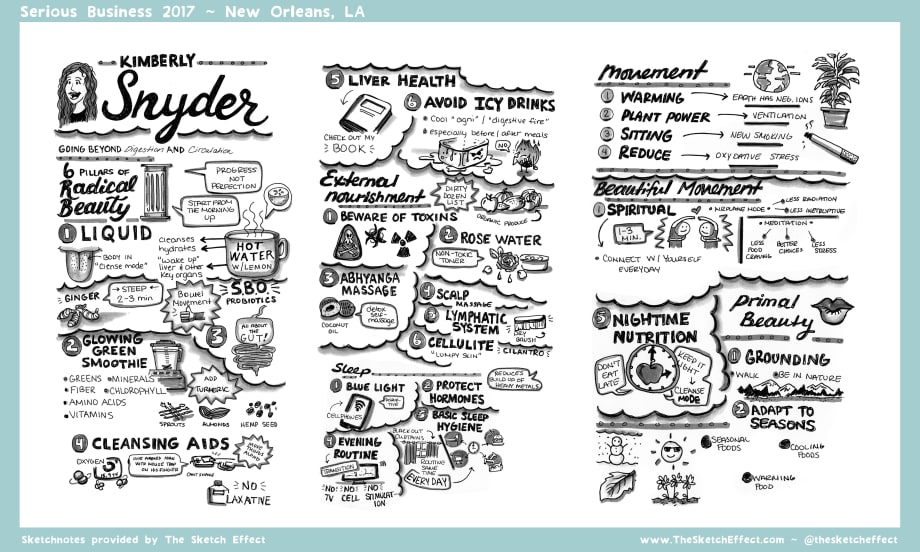 Serious Business 2017 ~ New Orleans, LA
KIMBERLY
Snyder
GOING BEYOND Digestion AND Circulation
6 PILLARS OF
Radical
Beauty
PROGRESS
NOT
PERFECTION
START FROM
THE MORNING
UP
1 LIQUID
BODY IN
"Cleanse mode"
cleanses
hydrates
"wake up"
liver & other
key organs
HOT
WATER
W/LEMON
GINGER
STEEP
2-3 min
Bowel
Movement
S.B.O.
PROBIOTICS
2 GLOWING
GREEN
SMOOTHIE
3
ALL ABOUT
THE
GUT!
• GREENS • MINERALS
• FIBER • CHLOROPHYLL
• AMINO ACIDS
• VITAMINS
ADD
TURMERIC
SPROUTS
ALMONDS
HEMP SEED
4 CLEANSING AIDS
OXYGEN
NO
LAXATIVE
5 LIVER HEALTH
CHECK OUT MY
BOOK
6 AVOID ICY DRINKS
• Cool "agni" / "digestive fire"
• especially before/after meals
NO
External
nourishment
DIRTY
DOZEN
LIST
ORGANIC PRODUCE
1 BEWARE OF TOXINS
2 ROSE WATER
NON-TOXIC
TONER
3 ABHYANGA
MASSAGE
COCONUT
OIL
detox
self-
massage
4 SCALP
MASSAGE
5 LYMPHATIC
SYSTEM
DRY
BRUSH
6 CELLULITE
"LUMPY SKIN"
CILANTRO
REDUCES
BUILD UP OF
HEAVY METALS
Sleep
1 BLUE LIGHT
CELLPHONES
2 PROTECT
HORMONES
3 BASIC SLEEP
HYGIENE
BLACK OUT
CURTAINS
ROUTINE
SAME
TIME
EVERY DAY
4 EVENING
ROUTINE
TRANSITION
NO
TV
NO
CELL
NO
STIMULAT-
ION
Movement
1 WARMING → EARTH HAS NEG. IONS
2 PLANT POWER → VENTILATION
3 SITTING → NEW SMOKING
4 REDUCE → OXYDATIVE STRESS
Beautiful Movement
1 SPIRITUAL
1-3
MIN.
• CONNECT W/ YOURSELF
EVERYDAY
AIRPLANE MODE
LESS RADIATION
LESS INTERUPTIVE
MEDITATION
LESS
FOOD
CRAVING
BETTER
CHOICES
LESS
STRESS
5 NIGHTIME
NUTRITION
DON'T
EAT
LATE
KEEP IT
LIGHT
CLEANSE
MODE
Primal
Beauty
1 GROUNDING
• WALK • BE IN NATURE
2 ADAPT TO
SEASONS
SEASONAL
FOODS
COOLING
FOODS
WARMING
FOOD
Sketchnotes provided by The Sketch Effect
www.TheSketchEffect.com ~ @thesketcheffect